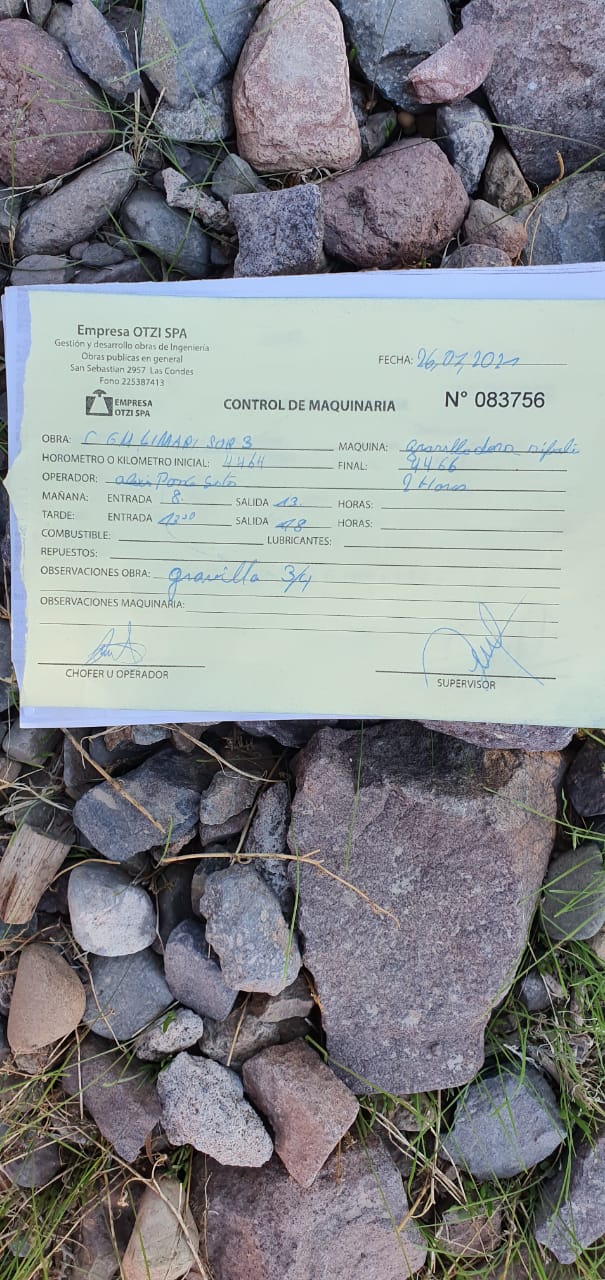 Empresa OTZI SPA
Gestión y desarrollo obras de Ingeniería
Obras publicas en general
San Sebastian 2957 Las Condes
Fono 225387413
EMPRESA
OTZI SPA
FECHA: 26,07,2021
CONTROL DE MAQUINARIA
N° 083756
OBRA: C GM LIMARI SOR 3 MAQUINA: gravilladora
HOROMETRO O KILOMETRO INICIAL: 4464 FINAL: 4466
OPERADOR: Soto 2 Horas
MAÑANA: ENTRADA 8. SALIDA 13. HORAS:
TARDE: ENTRADA 13 30 SALIDA 18 HORAS:
COMBUSTIBLE: LUBRICANTES:
REPUESTOS:
OBSERVACIONES OBRA: gravilla 3/4
OBSERVACIONES MAQUINARIA:
CHOFER U OPERADOR SUPERVISOR